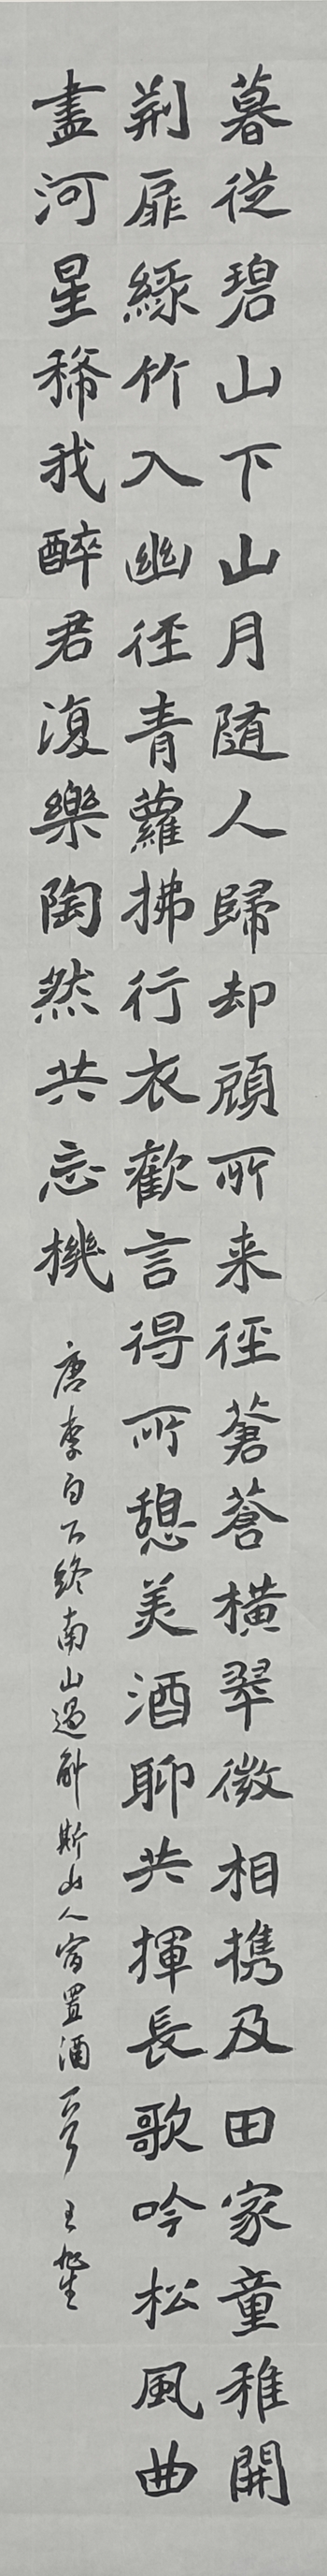 暮從碧山下山月隨人歸却顧所来徑蒼蒼橫翠微相携及田家童稚開
荆扉綠竹入幽徑青蘿拂行衣歡言得所憩美酒聊共揮長歌吟松風曲
盡河星稀我醉君復樂陶然共忘機
唐李白下終南山過斛斯山人宿置酒